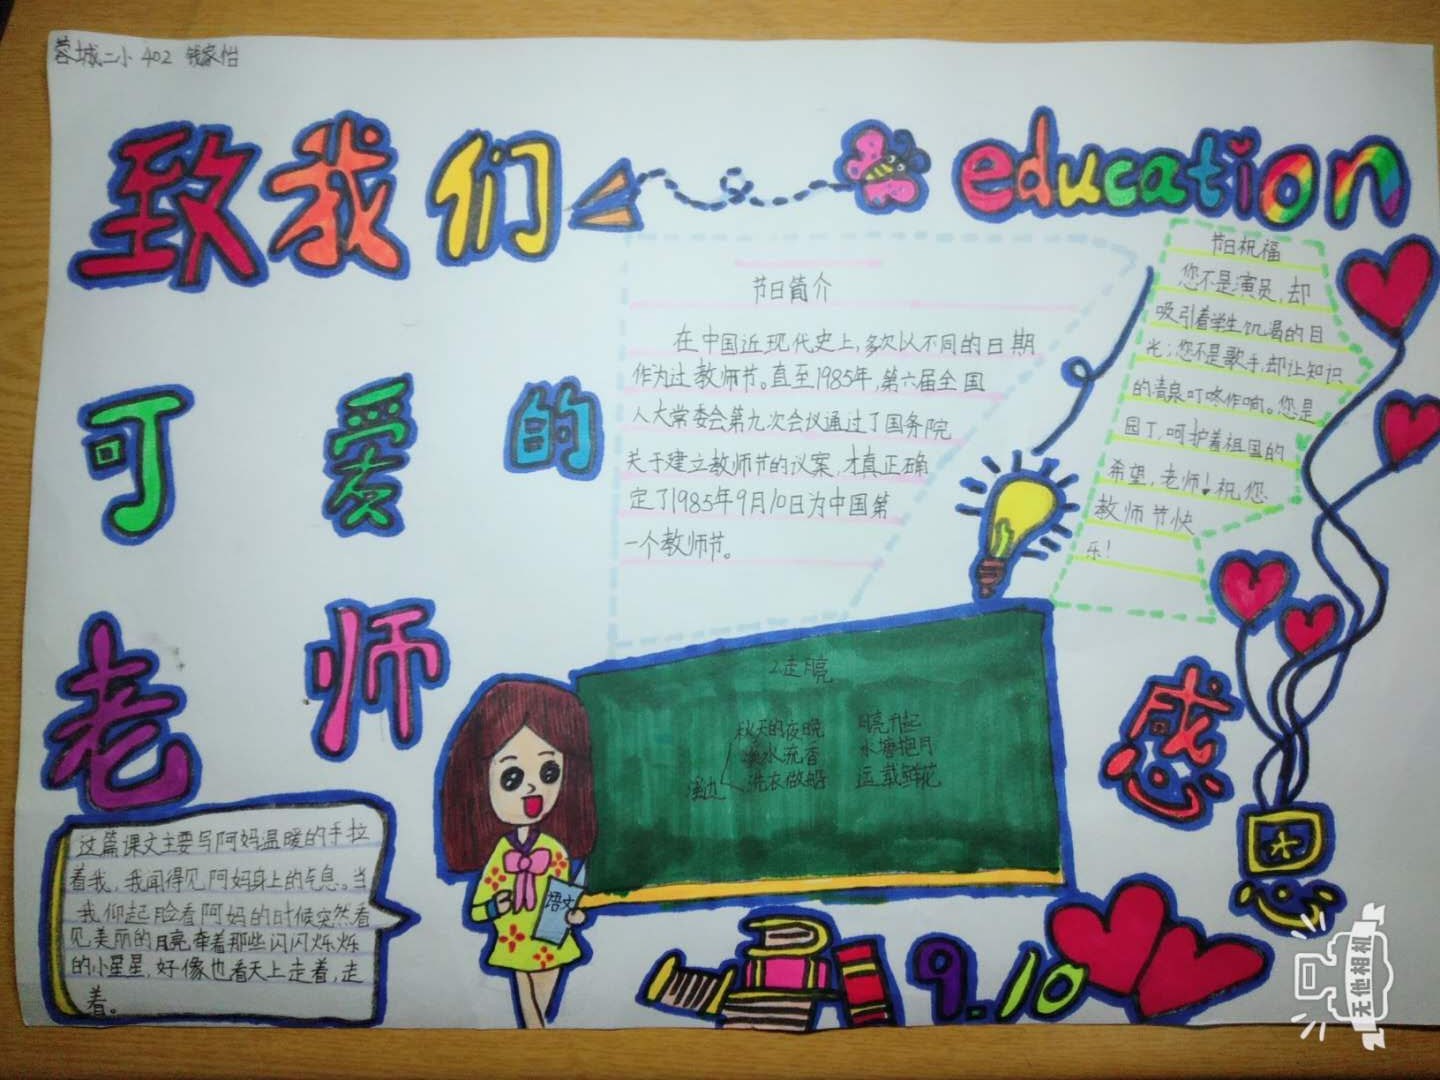 蓉城二小 402 钱家怡
致我们
education
可爱的
老师
节日简介
在中国近现代史上,多次以不同的日期
作为过教师节。直至1985年,第六届全国
人大常委会第九次会议通过了国务院
关于建立教师节的议案,才真正确
定了1985年9月10日为中国第
一个教师节。
节日祝福
您不是演员,却
吸引着学生饥渴的目
光;您不是歌手,却让知识
的清泉叮咚作响。您是
园丁,呵护着祖国的
希望,老师!祝您
教师节快
乐!
2.走月亮
秋天的夜晚 月亮升起
溪水流香 水塘抱月
溪边 洗衣做船 运载鲜花
感恩
这篇课文主要写阿妈温暖的手拉
着我,我闻得见阿妈身上的气息。当
我仰起脸看阿妈的时候突然看
见美丽的月亮牵着那些闪闪烁烁
的小星星,好像也看天上走着,走
着。
语文
9.10
无他相机